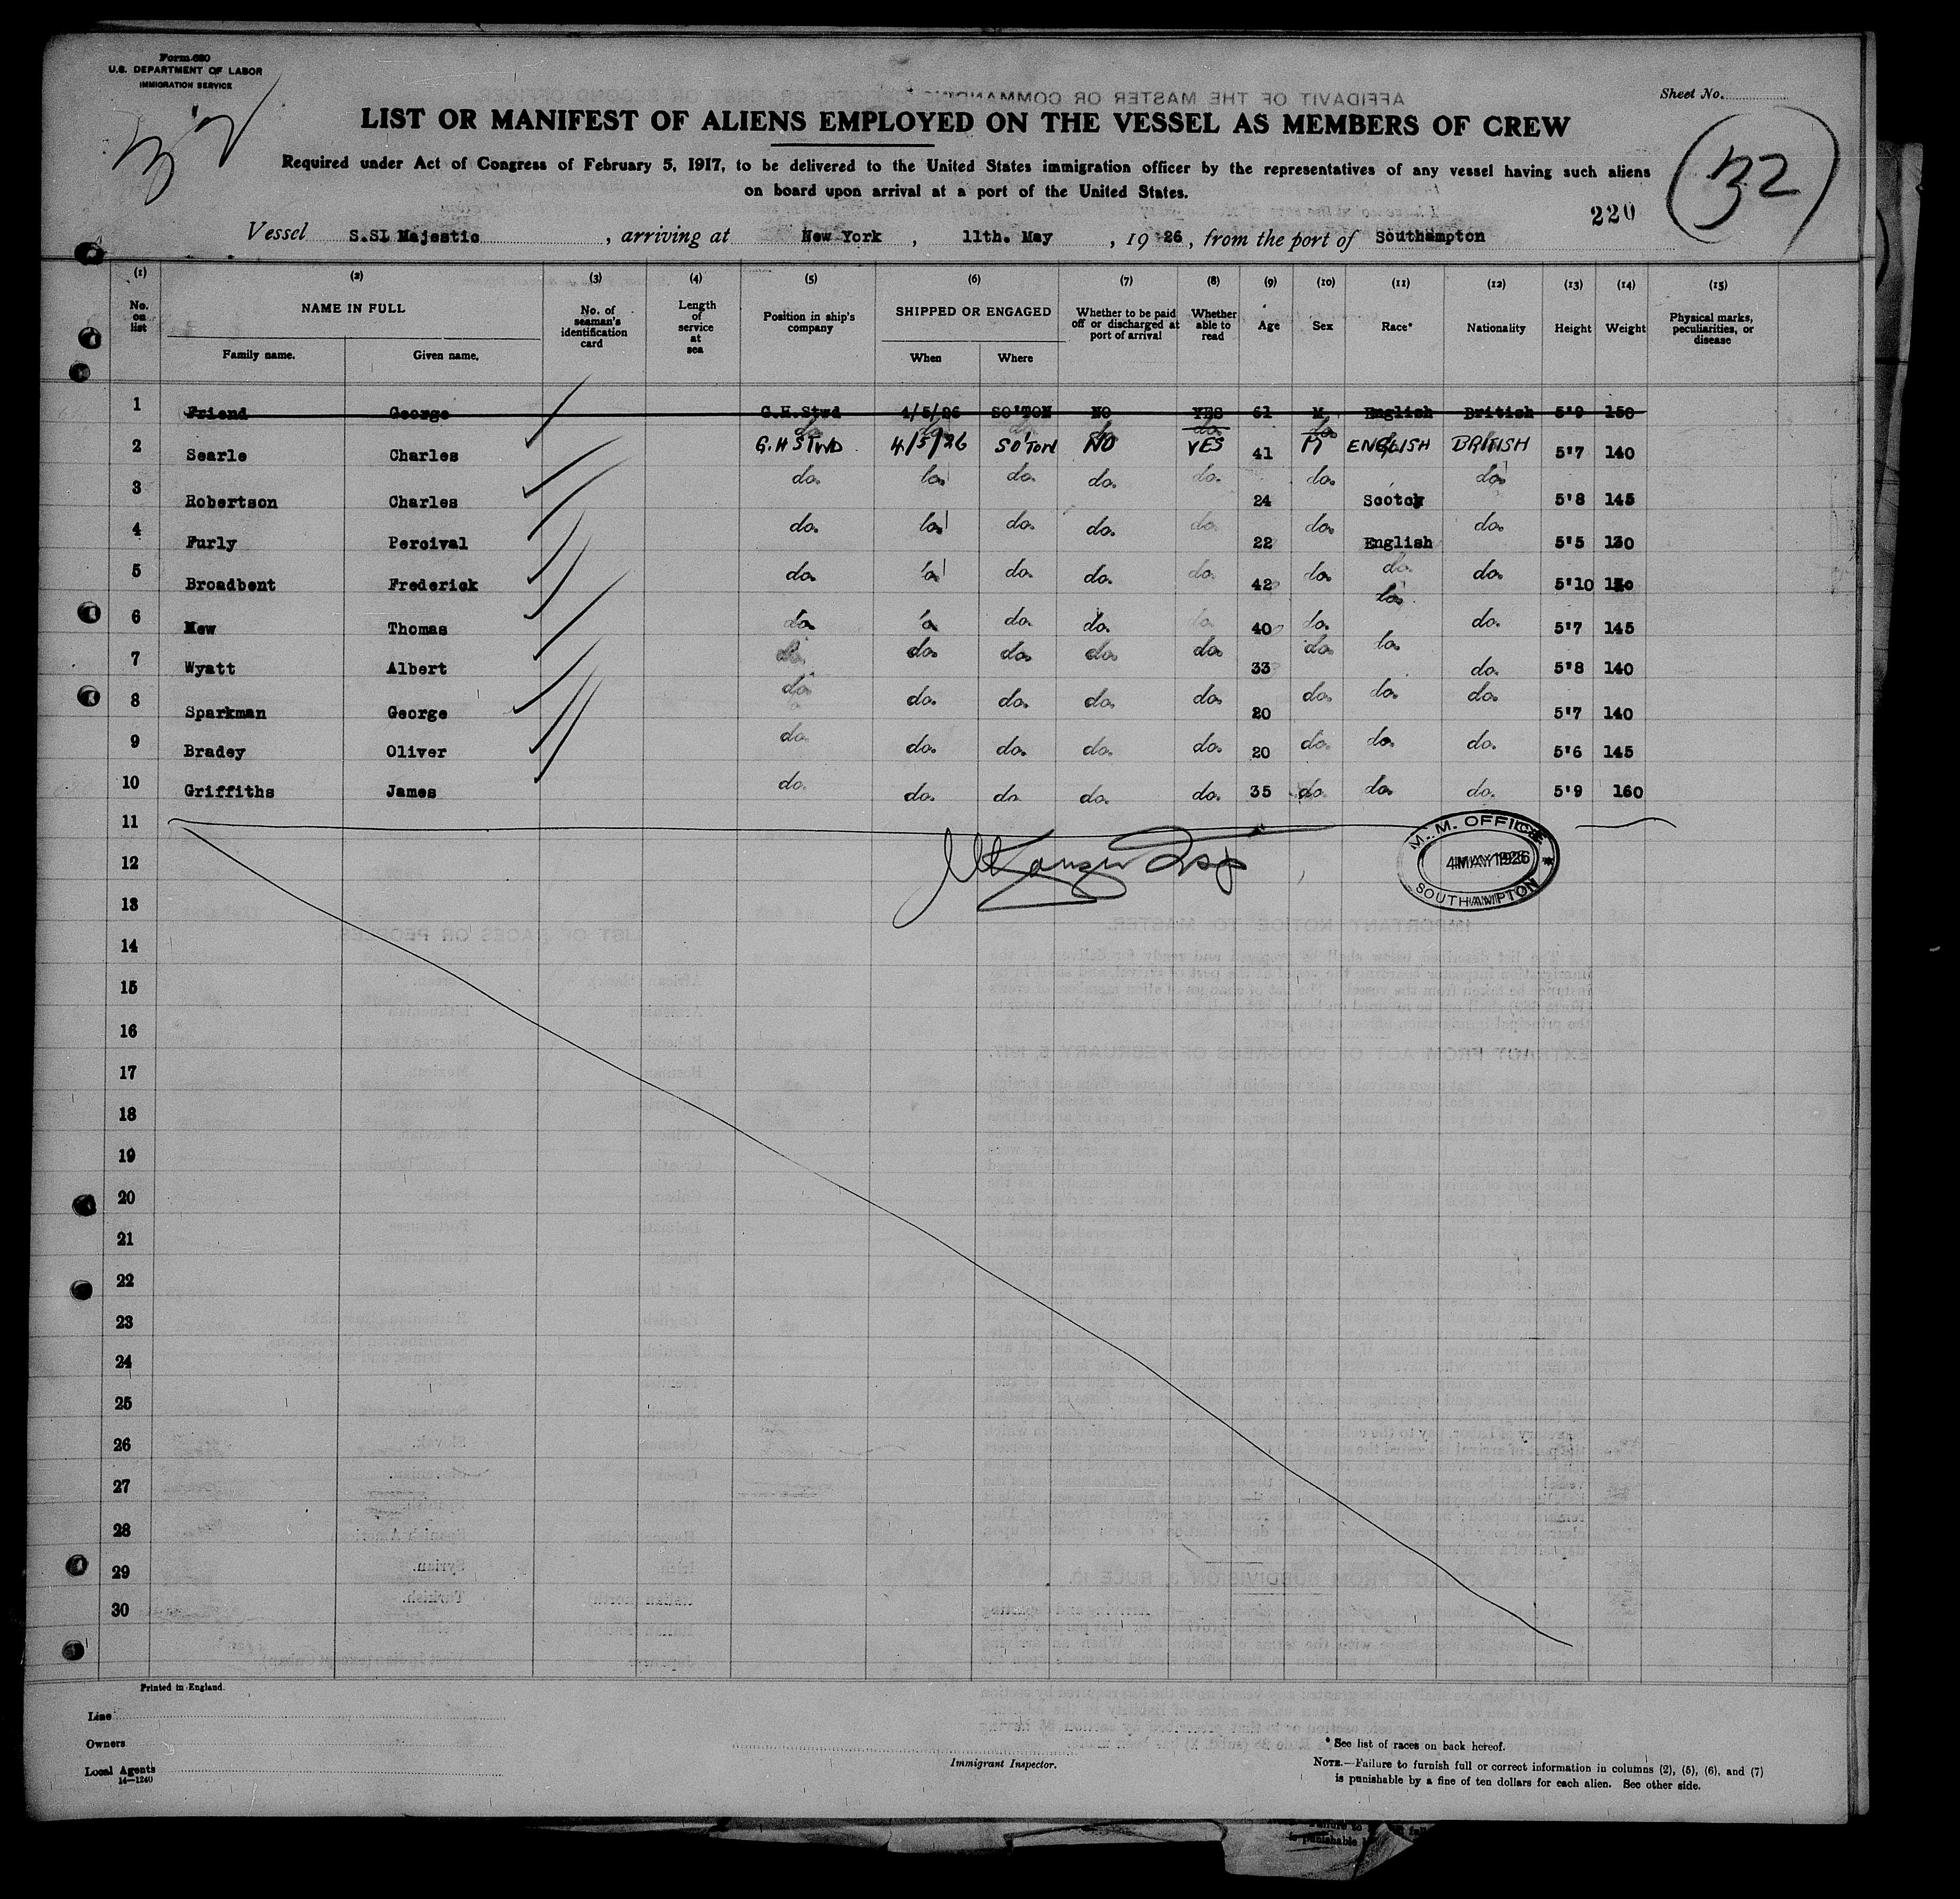 Form 680
U.S. DEPARTMENT OF LABOR
IMMIGRATION SERVICE
Sheet No.
LIST OR MANIFEST OF ALIENS EMPLOYED ON THE VESSEL AS MEMBERS OF CREW
32
Required under Act of Congress of February 5, 1917, to be delivered to the United States immigration officer by the representatives of any vessel having such aliens
on board upon arrival at a port of the United States.
220
Vessel S.SL Majestic, arriving at New York, 11th. May, 1926, from the port of Southampton
(1) (2) (3) (4) (5) (6) (7) (8) (9) (10) (11) (12) (13) (14) (15)
No. on list NAME IN FULL No. of seaman's identification card Length of service at sea Position in ship's company SHIPPED OR ENGAGED Whether to be paid off or discharged at port of arrival Whether able to read Age Sex Race* Nationality Height Weight Physical marks, peculiarities, or disease
Family name. Given name. When Where
1 Friend George G.H.Stwd 4/5/26 SO'TON NO YES 61 M English British 5'9 150
2 Searle Charles G.H STWD 4/5/26 SO'TON NO YES 41 M ENGLISH BRITISH 5'7 140
3 Robertson Charles do. do. do. do. do. 24 do. Scotch do. 5'8 145
4 Furly Percival do. do. do. do. do. 22 do. English do. 5'5 130
5 Broadbent Frederick do. do. do. do. do. 42 do. do. do. 5'10
6 New Thomas do. do. do. do. do. 40 do. do. do. 5'7 145
7 Wyatt Albert do. do. do. do. do. 33 do. do. do. 5'8 140
8 Sparkman George do. do. do. do. do. 20 do. do. do. 5'7 140
9 Bradey Oliver do. do. do. do. do. 20 do. do. do. 5'6 145
10 Griffiths James do. do. do. do. do. 35 do. do. do. 5'9 160
11
12
13
M.M. OFFICE
4 MAY 1926
SOUTHAMPTON
14
15
16
17
18
19
20
21
22
23
24
25
26
27
28
29
30
Printed in England.
Line
Owners
Local Agents
14—1240
Immigrant Inspector.
* See list of races on back hereof.
NOTE.—Failure to furnish full or correct information in columns (2), (5), (6), and (7)
is punishable by a fine of ten dollars for each alien. See other side.